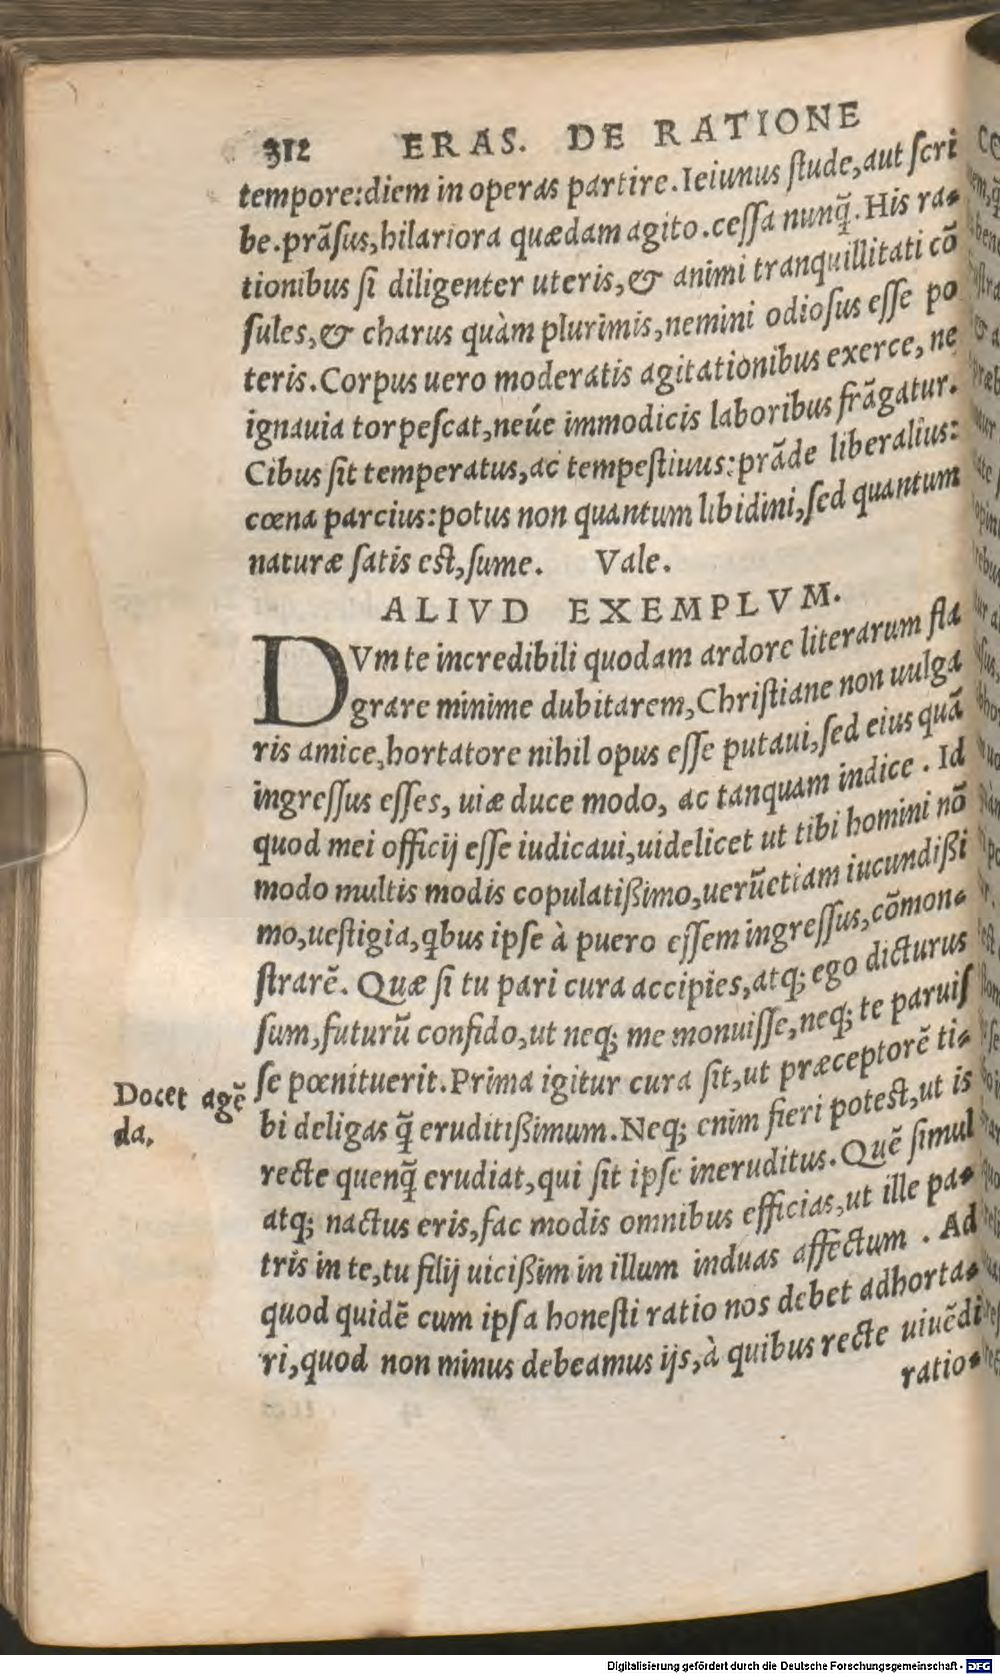 312 ERAS. DE RATIONE
tempore:diem in operas partire. Ieiunus ſtude,aut ſcri
be.prãſus,hilariora quædam agito.ceſſa nunq̃. His ra-
tionibus ſi diligenter uteris,& animi tranquillitati cõ
ſules,& charus quàm plurimis,nemini odioſus eſſe po
teris.Corpus uero moderatis agitationibus exerce, ne
ignauia torpeſcat,neúe immodicis laboribus frãgatur.
Cibus ſit temperatus,ac tempeſtiuus:prãde liberalius:
cœna parcius:potus non quantum libidini,ſed quantum
naturæ ſatis eſt,ſume. Vale.
ALIVD EXEMPLVM.
DVm te incredibili quodam ardore literarum fla
grare minime dubitarem,Chriſtiane non uulga
ris amice,hortatore nihil opus eſſe putaui,ſed eius quã
ingreſſus eſſes, uiæ duce modo, ac tanquam indice . Id
quod mei officij eſſe iudicaui,uidelicet ut tibi homini nõ
modo multis modis copulatißimo,uerũetiam iucundißi
mo,ueſtigia,q̃bus ipſe à puero eſſem ingreſſus,cõmon-
ſtrarẽ. Quæ ſi tu pari cura accipies,atq; ego dicturus
ſum,futurũ confido,ut neq; me monuiſſe,neq; te paruiſ
ſe pœnituerit.Prima igitur cura ſit,ut præceptorẽ ti-
Docet agẽ
da.
bi deligas q̃ eruditißimum.Neq; enim fieri poteſt,ut is
recte quenq̃ erudiat,qui ſit ipſe ineruditus. Quẽ ſimul
atq; nactus eris,fac modis omnibus efficias,ut ille pa-
tris in te,tu filij uicißim in illum induas affectum . Ad
quod quidẽ cum ipſa honeſti ratio nos debet adhorta-
ri,quod non minus debeamus ijs,à quibus recte uiuẽdi
ratio-
Digitalisierung gefördert durch die Deutsche Forschungsgemeinschaft - DFG